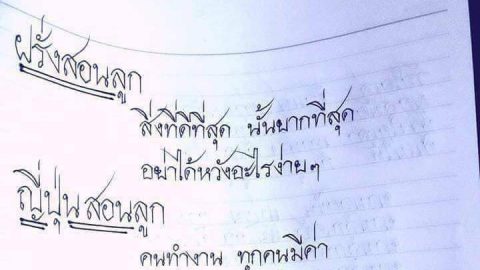 ฝรั่งสอนลูก
สิ่งที่ดีที่สุด นั้นยากที่สุด
อย่าได้หวังอะไรง่ายๆ
ญี่ปุ่นสอนลูก
คนทำงาน ทุกคนมีค่า